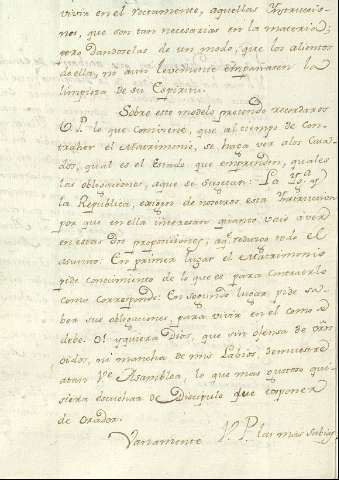 vivir en el rectamente, aquellas Instruccio-
nes, que son tan necesarias en la materia;
pero dandoselas de un modo, que los alientos
de ella, no aun levemente empañasen la
limpieza de su Espiritu.
Sobre este modelo pretendo recordaros
P.P. lo que conviene, que al tiempo de con-
traher el Matrimonio, se haga ver alos Casa-
dos, qual es el Estado que emprenden, quales
las obligaciones, aque se sugetan: La
la Republica, exigen de nosotros esta Instruccion
por que en ella interesan quanto vaió a ver
en estas dos proposiciones, aq.e reduzco todo el
asunto: En primera lugar el Matrimonio
pide conocimiento de lo que es para contraerlo
como corresponde: En segundo lugar, pide sa-
ber sus obligaciones, para vivir en el como se
debe. O! quiera Dios, que sin ofensa de vros
oidos, ni mancha de mis Labios, demuestre
atan V.e Asamblea, lo que mas gustoso qui-
siera escuchar de Discipulo que exponer
de orador.
Vanamente V. P. las mas sabias